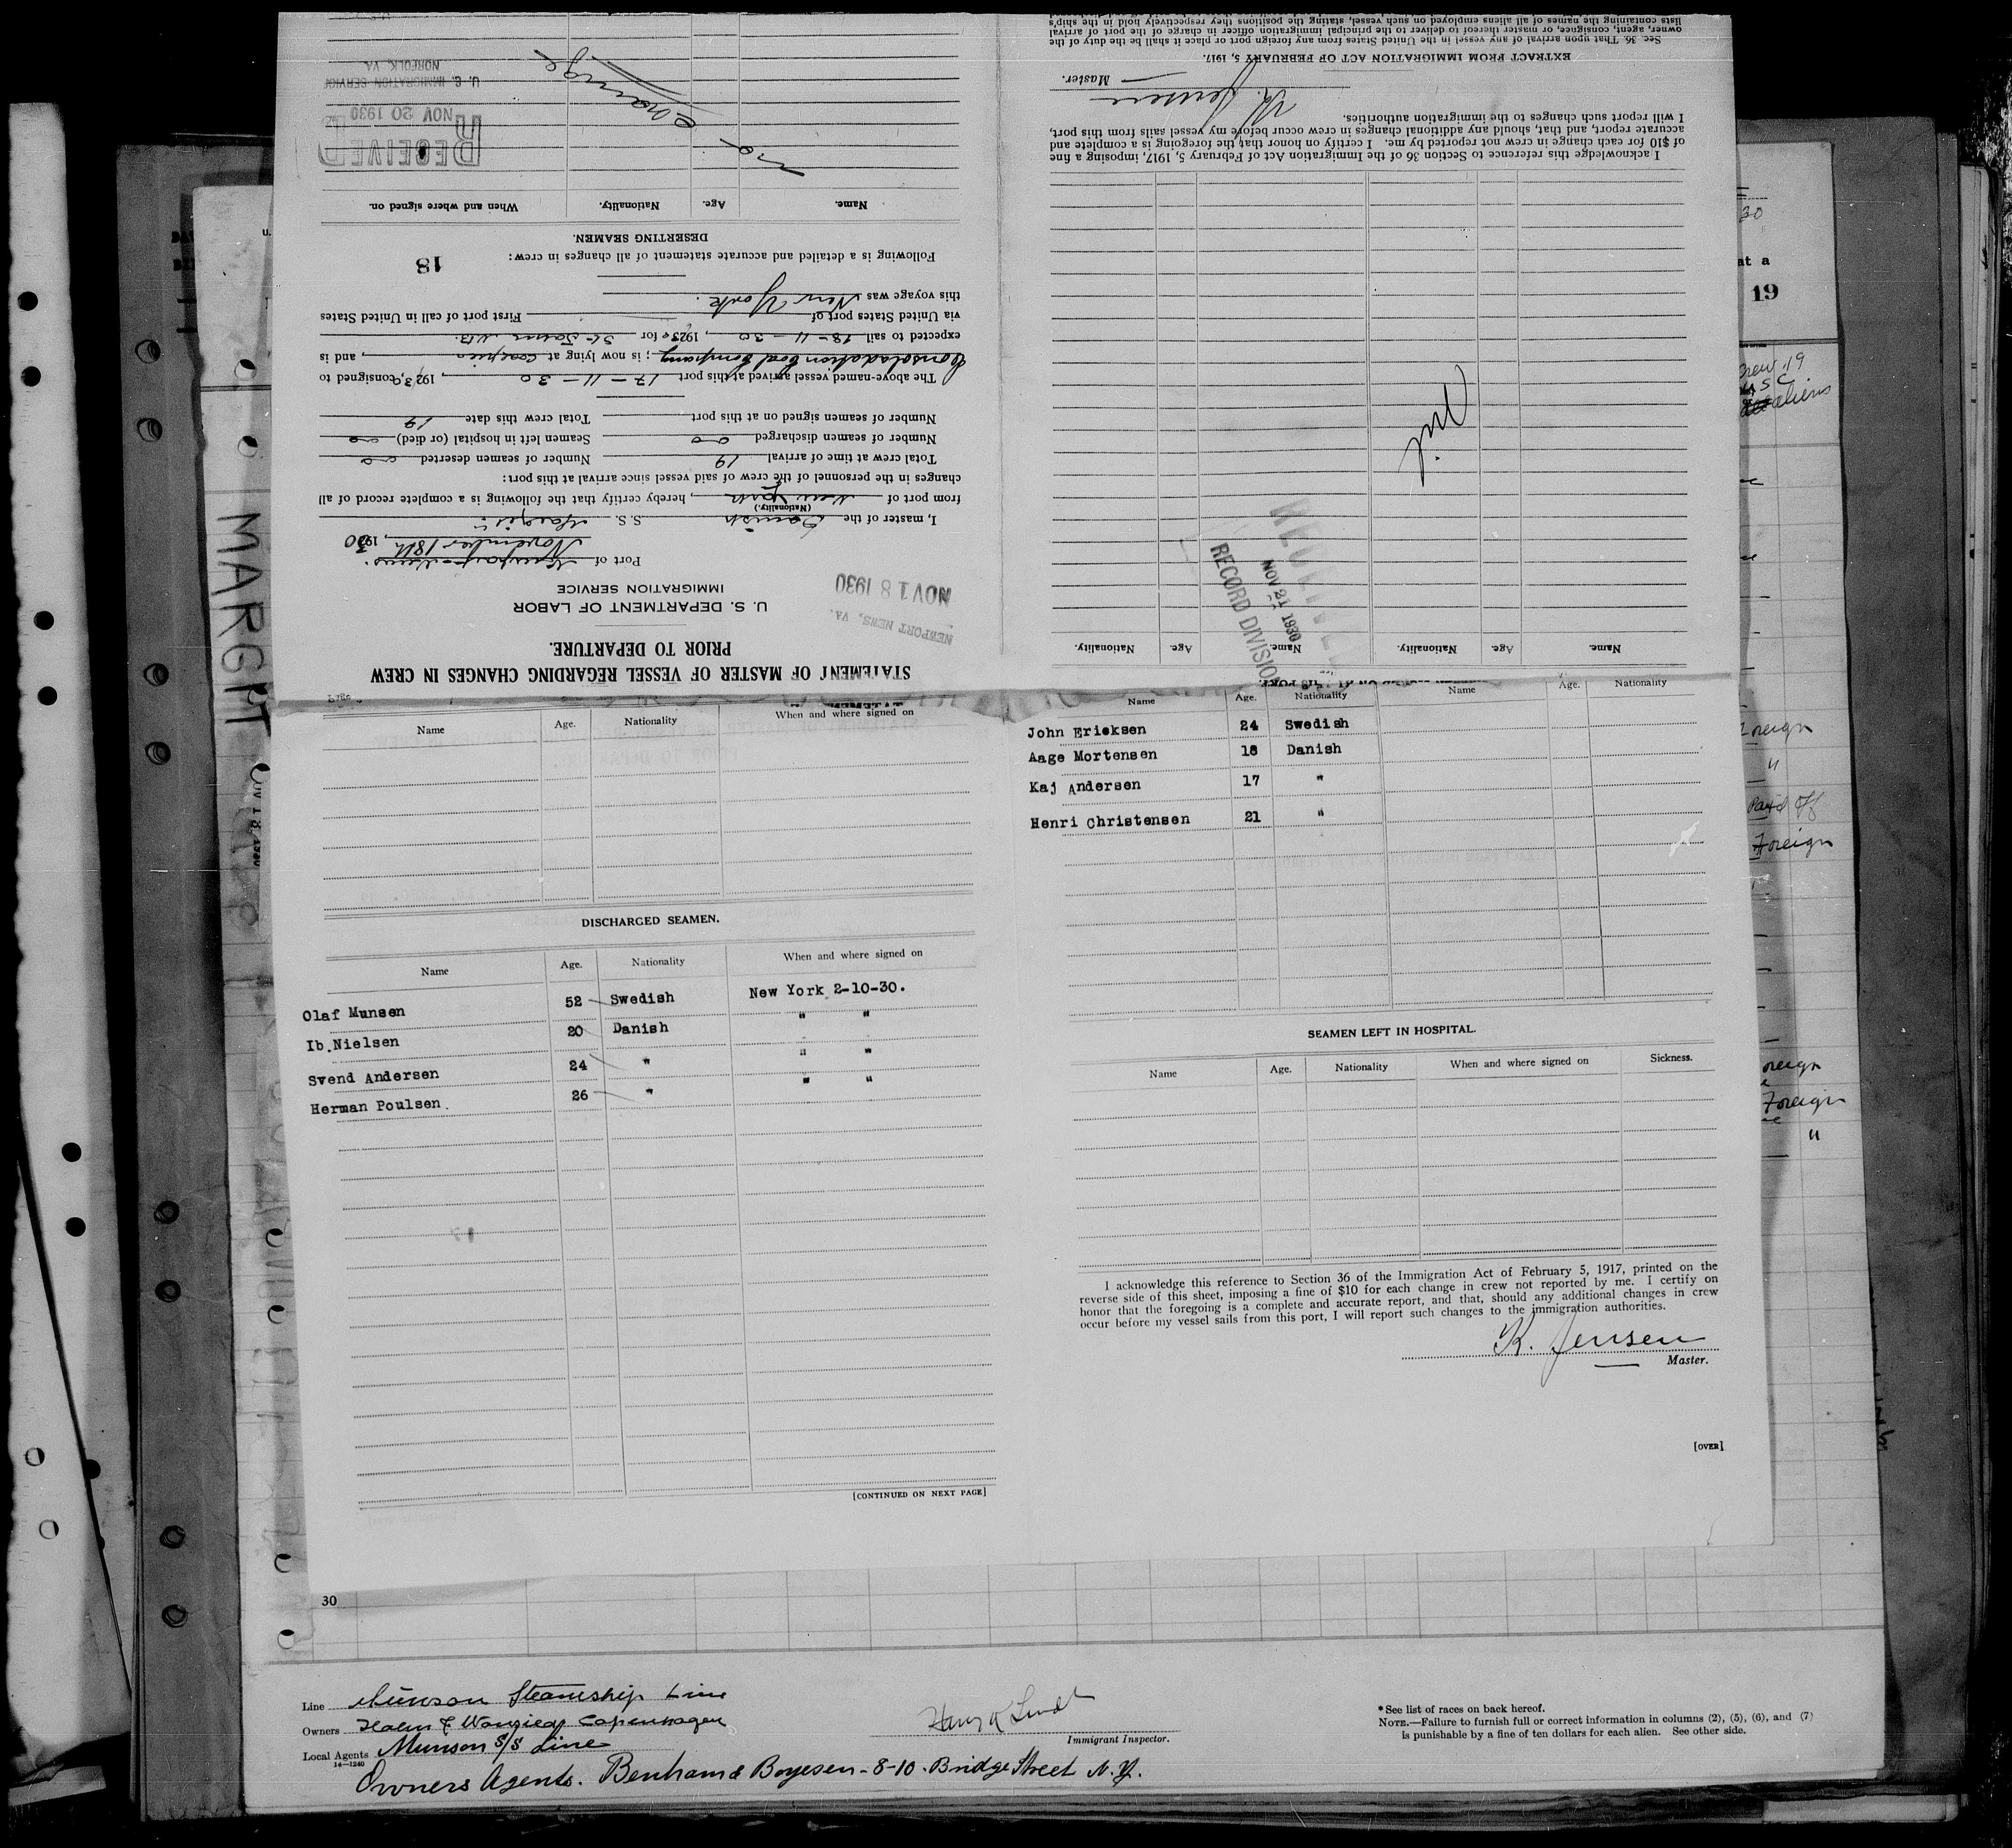 STATEMENT OF MASTER OF VESSEL REGARDING CHANGES IN CREW
PRIOR TO DEPARTURE.
U. S. DEPARTMENT OF LABOR
IMMIGRATION SERVICE
NEWPORT NEWS, VA.
NOV 18 1930
Port of Newport News
November 18th, 1930
I, master of the Danish S. S. Margit
(Nationality.)
from port of New York, hereby certify that the following is a complete record of all
changes in the personnel of the crew of said vessel since arrival at this port:
Total crew at time of arrival 19 Number of seamen deserted
Number of seamen discharged Seamen left in hospital (or died)
Number of seamen signed on at this port Total crew this date 19
The above-named vessel arrived at this port 17-11-30, 1923, consigned to
Consolidation Coal Company; is now lying at, and is
expected to sail 18-11-30, 1923 for St. John N.B.
via United States port of First port of call in United States
this voyage was New York.
Following is a detailed and accurate statement of all changes in crew:
18
DESERTING SEAMEN.
Name. Age. Nationality. When and where signed on.
No change
RECEIVED
NOV 20 1930
U. S. IMMIGRATION SERVICE
NORFOLK, VA.
Name. Age. Nationality. Name. Age. Nationality.
RECORD DIVISION
NOV 21 1930
I acknowledge this reference to Section 36 of the Immigration Act of February 5, 1917, imposing a fine
of $10 for each change in crew not reported by me. I certify on honor that the foregoing is a complete and
accurate report, and that, should any additional changes in crew occur before my vessel sails from this port,
I will report such changes to the immigration authorities.
K. Jensen
Master.
EXTRACT FROM IMMIGRATION ACT OF FEBRUARY 5, 1917.
Sec. 36. That upon arrival of any vessel in the United States from any foreign port or place it shall be the duty of the
owner, agent, consignee, or master thereof to deliver to the principal immigration officer in charge of the port of arrival
lists containing the names of all aliens employed on such vessel, stating the positions they respectively hold in the ship's
MARGIT
Name Age. Nationality When and where signed on
DISCHARGED SEAMEN.
Name Age. Nationality When and where signed on
Olaf Munsen 52 Swedish New York 2-10-30.
Ib.Nielsen 20 Danish " "
Svend Andersen 24 " " "
Herman Poulsen. 26 " " "
[CONTINUED ON NEXT PAGE]
Name Age. Nationality Name Age. Nationality
John Ericksen 24 Swedish
Aage Mortensen 18 Danish
Kaj Andersen 17 "
Henri Christensen 21 "
SEAMEN LEFT IN HOSPITAL.
Name Age. Nationality When and where signed on Sickness.
I acknowledge this reference to Section 36 of the Immigration Act of February 5, 1917, printed on the
reverse side of this sheet, imposing a fine of $10 for each change in crew not reported by me. I certify on
honor that the foregoing is a complete and accurate report, and that, should any additional changes in crew
occur before my vessel sails from this port, I will report such changes to the immigration authorities.
K. Jensen
Master.
[OVER]
30
at a
19
Crew 19
aliens
Foreign
"
Paid off
Foreign
oreign
Foreign
"
30
Line Munson Steamship Line
Owners Copenhagen
Local Agents Munson S/S Line
14—1240
Owners Agents. Benham & Boyesen - 8-10. Bridge Street N.Y.
Immigrant Inspector.
* See list of races on back hereof.
NOTE.—Failure to furnish full or correct information in columns (2), (5), (6), and (7)
is punishable by a fine of ten dollars for each alien. See other side.